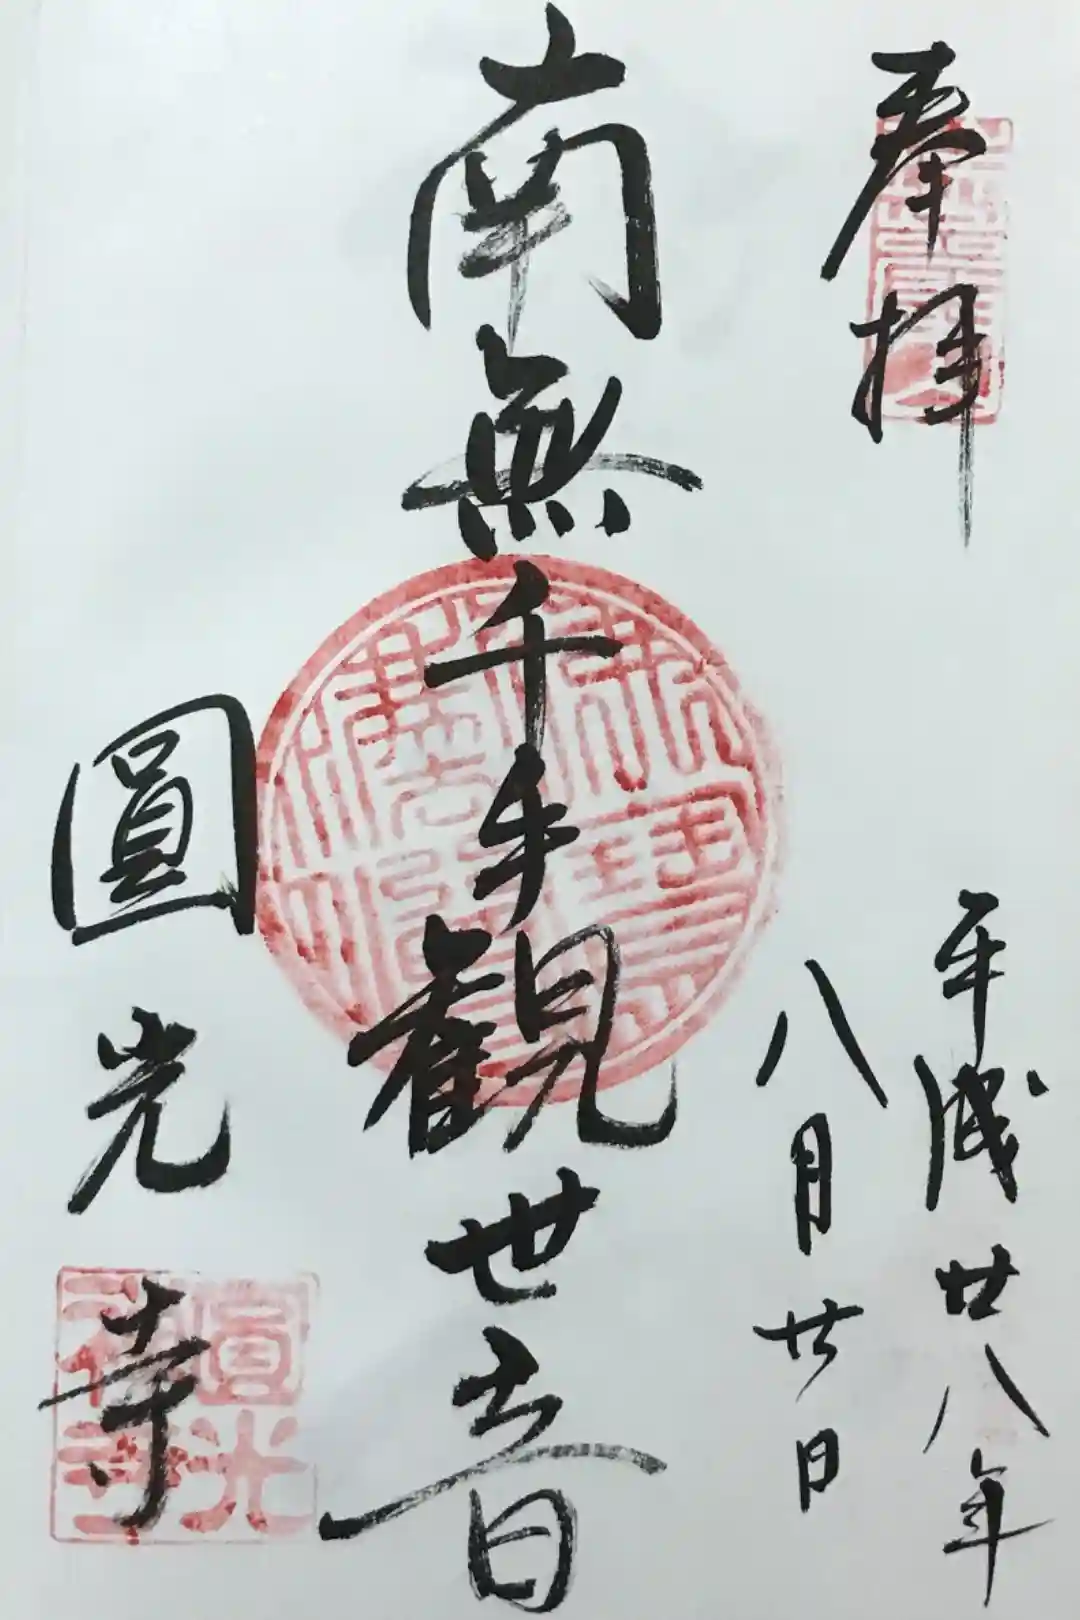 奉拝
平成廿八年
八月廿日
南無千手観世音
圓光寺
圓光
禅寺